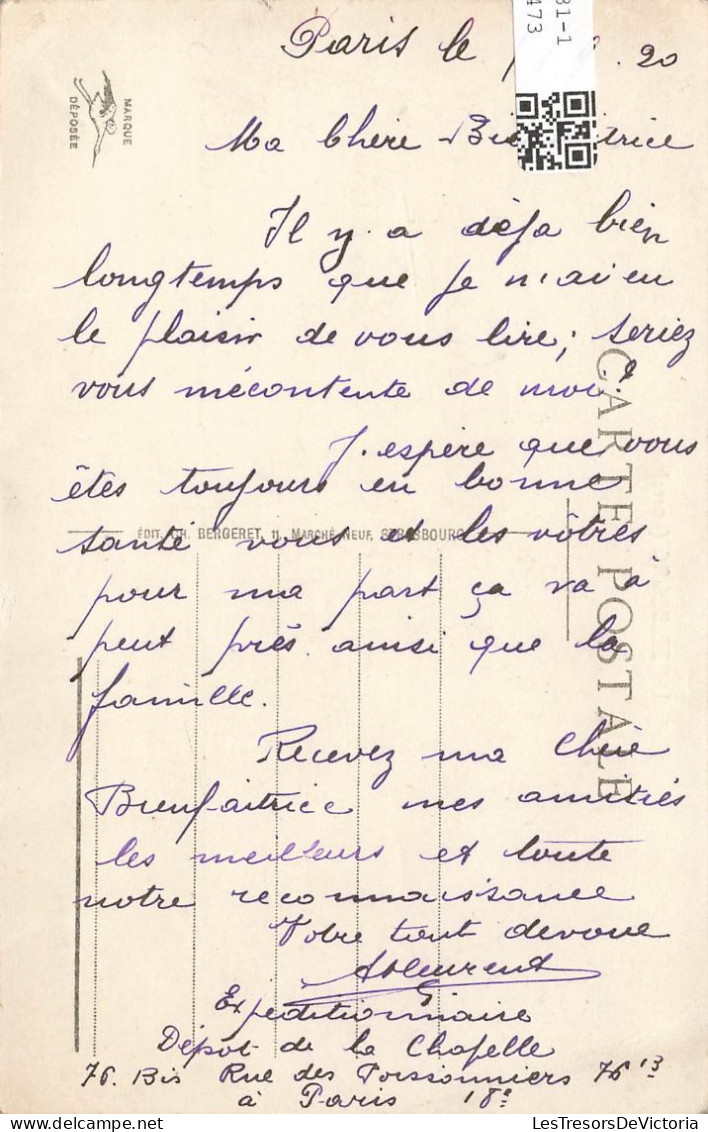 81-1
473
Paris le 20
MARQUE
DÉPOSÉE
Ma Chère
Il y a déja bien
longtemps que je n'ai eu
le plaisir de vous lire; seriez
vous mécontente de moi?
J'espère que vous
êtes toujours en bonne
santé vous et les vôtres
pour ma part ça va à
peut près ainsi que la
famille.
Recevez ma Chère
Bienfaitrice mes amitiés
les meilleurs et toute
notre reconnaissance
Votre tout devoué
Expéditionnaire
Dépot de la Chapelle
76. Bis Rue des Poissonniers 76
à Paris 18e
EDIT. CH. BERGERET, 11, MARCHÉ-NEUF, STRASBOURG
CARTE POSTALE
LesTresorsDeVictoria